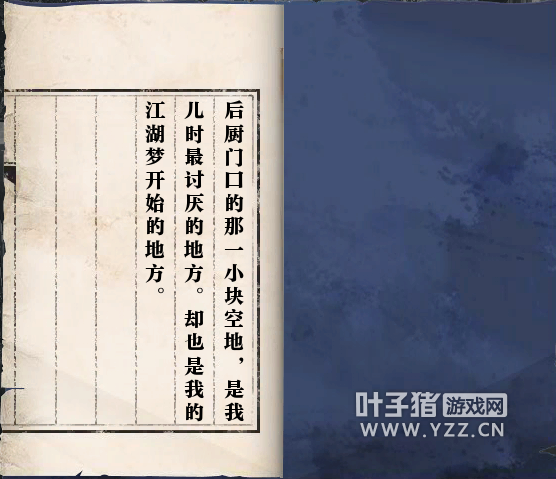 后厨门口的那一小块空地，是我
儿时最讨厌的地方。却也是我的
江湖梦开始的地方。
叶子猪游戏网
WWW.YZZ.CN